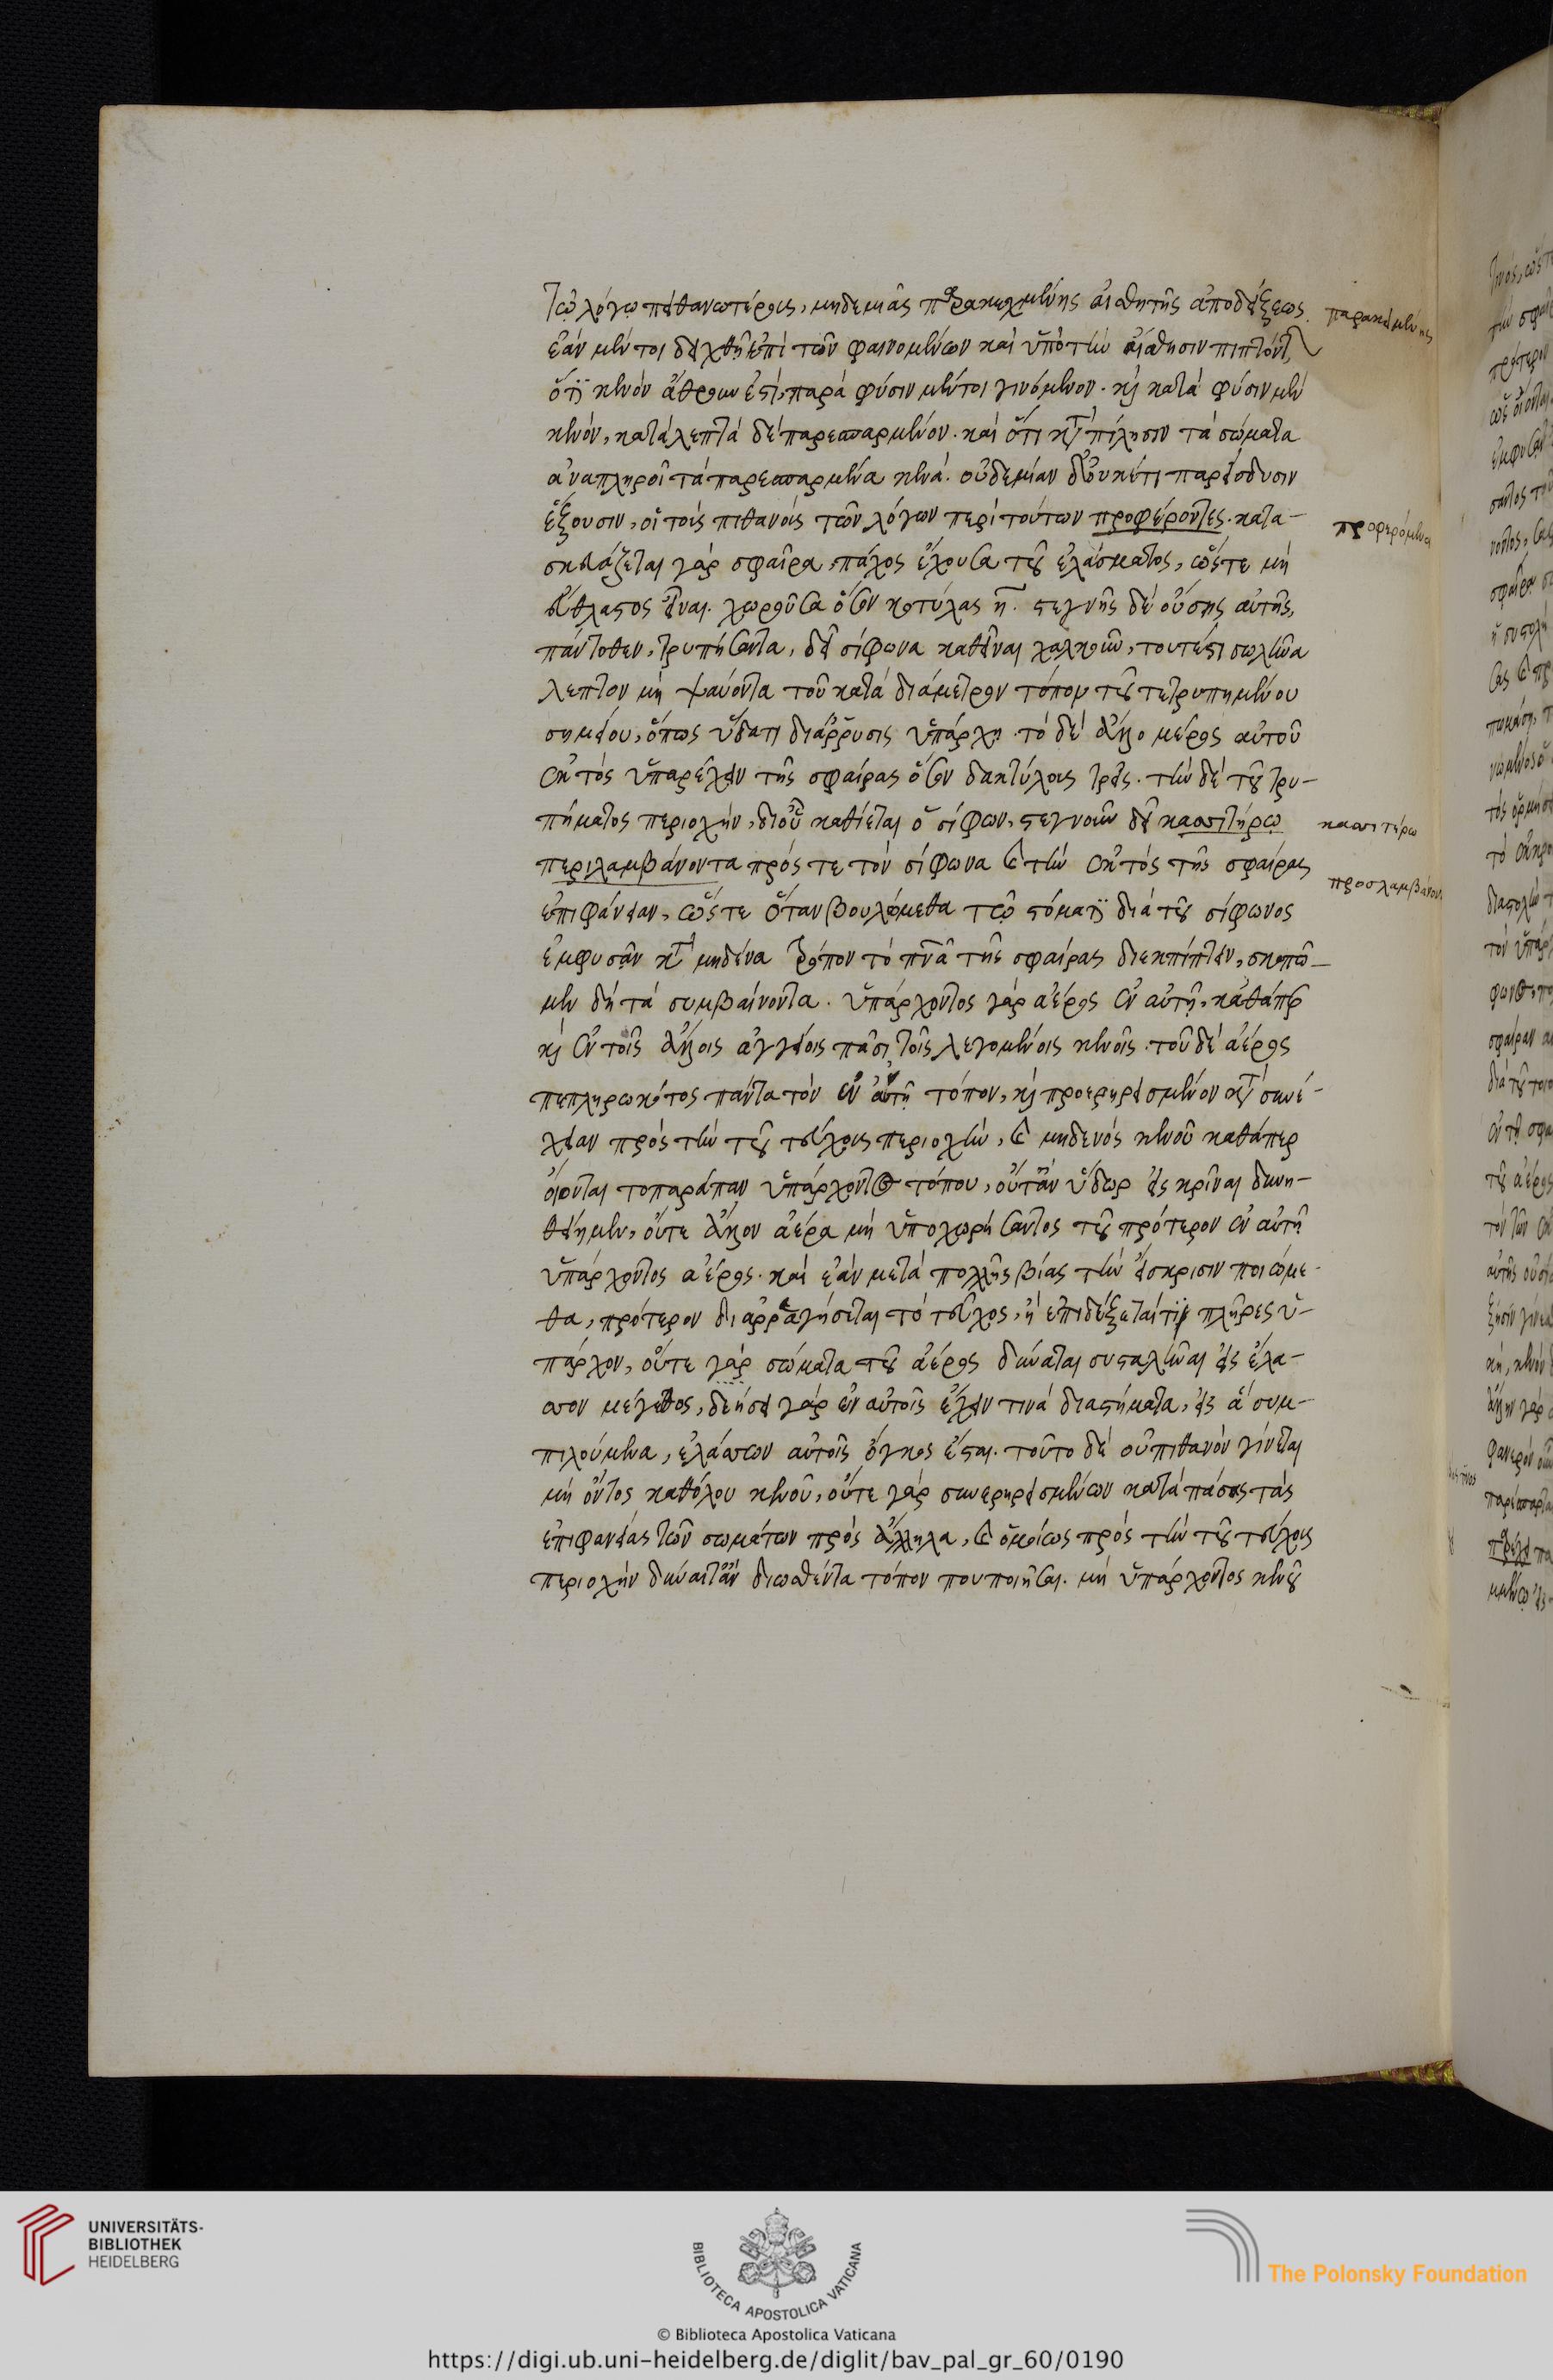 τῷ λόγῳ πειθανωτέροις, μηδεμιᾶς παρακειμένης αἰσθητῆς ἀποδείξεως.
παρακειμένης
ἐάν μέντοι δειχθῇ ἐπί τῶν φαινομένων καί ὑπό τήν αἴσθησιν πιπτόντων
ὅτι κενόν ἄθρουν ἐστί, παρά φύσιν μέντοι γινόμενον. καί κατά φύσιν μέν
κενόν, κατά λεπτά δέ παρεσπαρμένον. καί ὅτι κατά πίλησιν τά σώματα
ἀναπληροῖ τά παρεσπαρμένα κενά. οὐδεμίαν οὐκέτι παρείσδυσιν
ἕξουσιν, οἱ τούς πιθανούς τῶν λόγων περί τούτων προφέροντες. κατα-
προφερόμενοι
σκευάζεται γάρ σφαῖρα, πάχος ἔχουσα τοῦ ἐλάσματος, ὥστε μή
εὔθλαστος εἶναι. χωροῦσα ὅσον κοτύλας η. στεγνῆς δέ οὔσης αὐτῆς,
πάντοθεν, τρυπήσαντα, δεῖ σίφωνα καθεῖναι χαλκοῦν, τουτέστι σωλῆνα
λεπτον μή ψαύοντα τοῦ κατά διάμετρον τόπον τοῦ τετρυπημένου
σημείου, ὅπως ὕδατι διάρρυσις ὑπάρχῃ. τό δέ ἄλλο μέρος αὐτοῦ
ἐκτός ὑπερέχειν τῆς σφαίρας ὅσον δακτύλους τρεῖς. τήν δέ τοῦ τρυ-
πήματος περιοχήν, διοῦ καθίεται ὁ σίφων, στεγνοῦν δεῖ κασσιτήρῳ
κασσιτέρω
περιλαμβάνοντα πρός τε τόν σίφωνα καί τήν ἐκτός τῆς σφαίρας
προσλαμβάνον
ἐπιφάνειαν, ὥστε ὅταν βουλόμεθα τῷ στόματι διά τοῦ σίφωνος
ἐμφυσᾶν κατά μηδένα τρόπον τό πνᾶ τῆς σφαίρας διεκπίπτειν, σκοπῶ-
μεν δή τά συμβαίνοντα. ὑπάρχοντος γάρ ἀέρος ἐν αὐτῇ, καθάπερ
καί ἐν τοῖς ἄλλοις ἀγγείοις πᾶσι τοῖς λεγομένοις κενοῖς. τοῦ δέ ἀέρος
πεπληρωκότος πάντα τόν ἐν αὐτῇ τόπον, καί προερηρεισμένον κατά συνέ-
χειαν πρός τήν τοῦ τεύχους περιοχήν, καί μηδενός κενοῦ καθάπερ
οἴονται τοπαράπαν ὑπάρχοντος τόπου, οὔτἄν ὕδωρ εἰς κρῖναι δυνη-
θείημεν, οὔτε ἄλλον ἀέρα μή ὑποχωρήσαντος τοῦ πρότερον ἐν αὐτῇ
ὑπάρχοντος ἀέρος. καί ἐάν μετά πολλῆς βίας τήν εἴσκρισιν ποιώμε-
θα, πρότερον διαρραγήσεται τό τεῦχος, ἤ ἐπιδέξεταί τι πλῆρες ὑ-
πάρχον, οὔτε γάρ σώματα τοῦ ἀέρος δύναται συσταλῆναι εἰς ἔλα-
σσον μέγεθος, δεήσει γάρ ἐν αὐτοῖς ἔχειν τινά διαστήματα, εἰς ἅ συμ-
πιλούμενα, ἐλάσσων αὐτοῖς ὄγκος ἔσται. τοῦτο δέ οὐ πιθανόν γίνεται
μή ὄντος καθόλου κενοῦ, οὔτε γάρ συνερηρεισμένων κατά πάσας τάς
ἐπιφανείας τῶν σωμάτων πρός ἄλληλα, καί ὁμοίως πρός τήν τοῦ τεύχους
περιοχήν δύναιτἄν διωσθέντα τόπον που ποιῆσαι. μή ὑπάρχοντος κενοῦ
UNIVERSITÄTS-
BIBLIOTHEK
HEIDELBERG
BIBLIOTECA APOSTOLICA VATICANA
The Polonsky Foundation
© Biblioteca Apostolica Vaticana
https://digi.ub.uni-heidelberg.de/diglit/bav_pal_gr_60/0190